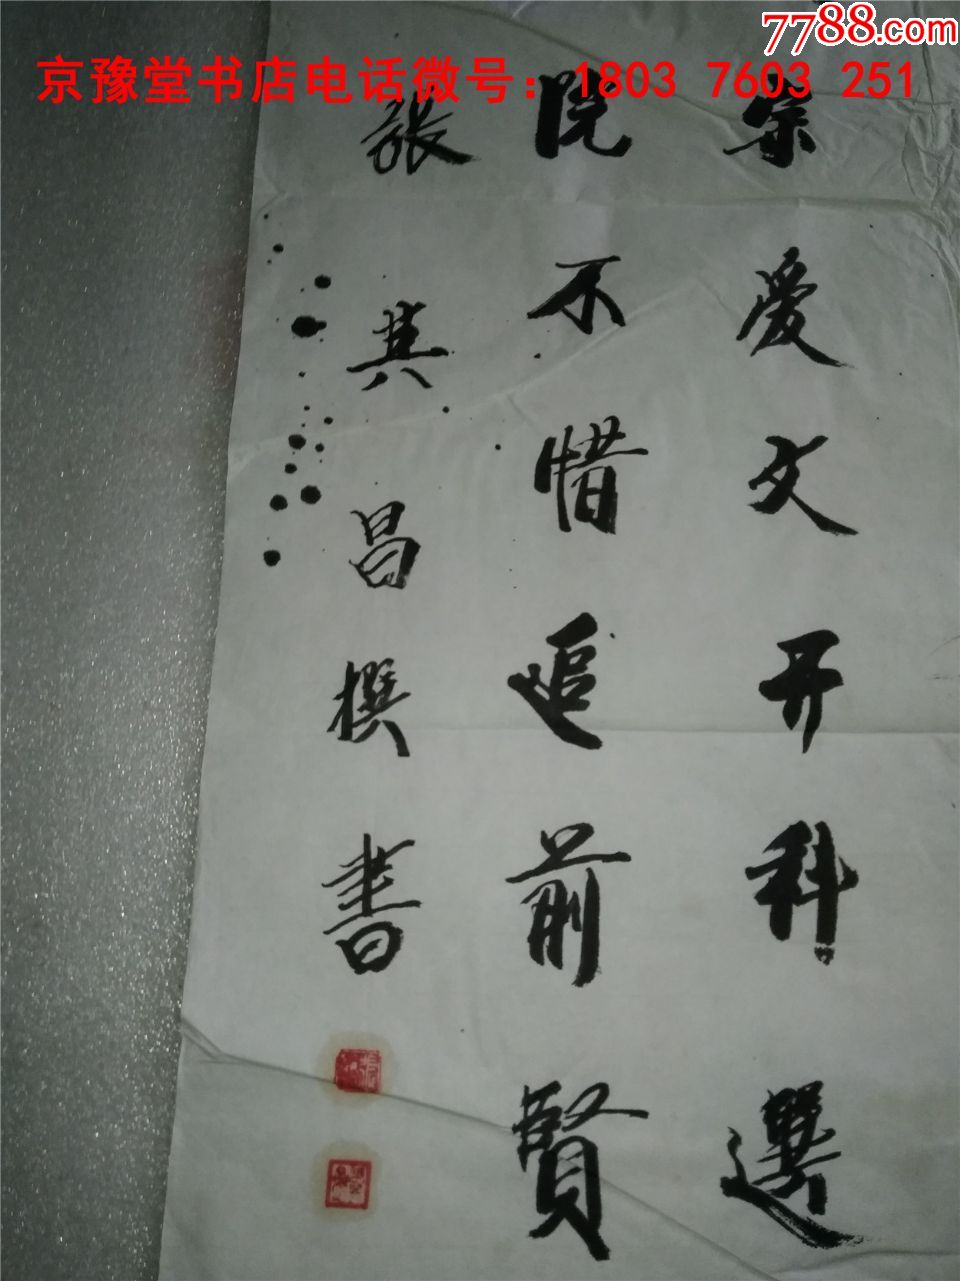 7788.com
京豫堂书店电话微号：1803 7603 251
宗爱文开科選
院不惜追前賢
張其昌撰書